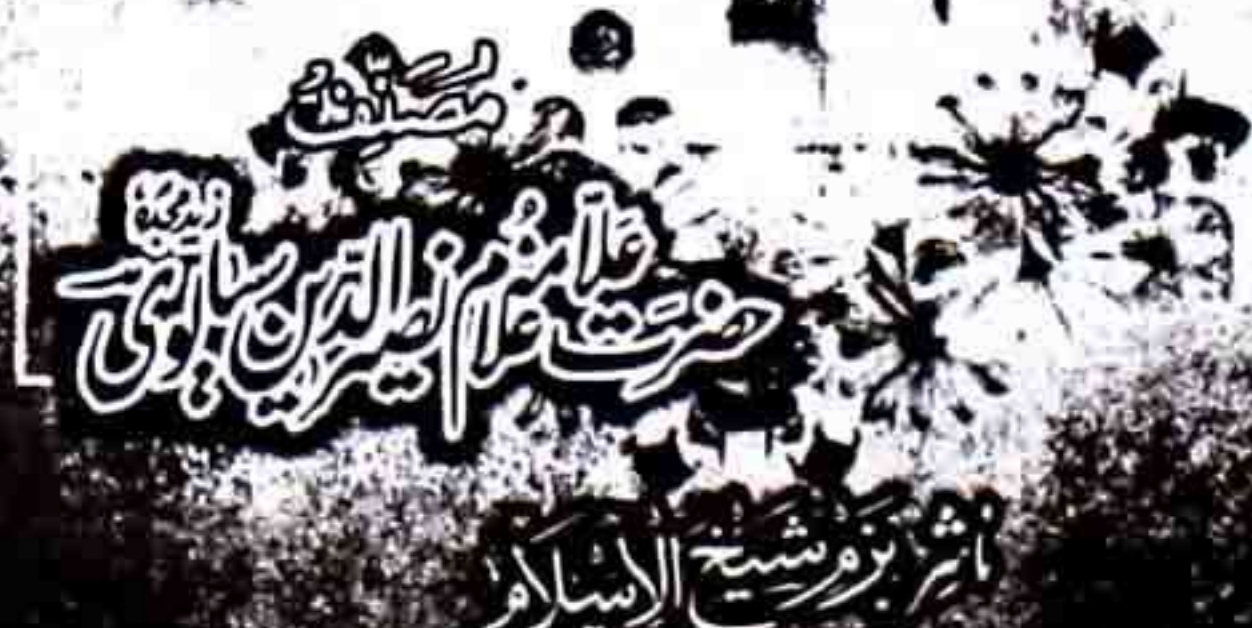 مُصَنِّف
حضرت غلام نصیر الدین سیالوی زید مجدہ
ناشر بزم شیخ الاسلام